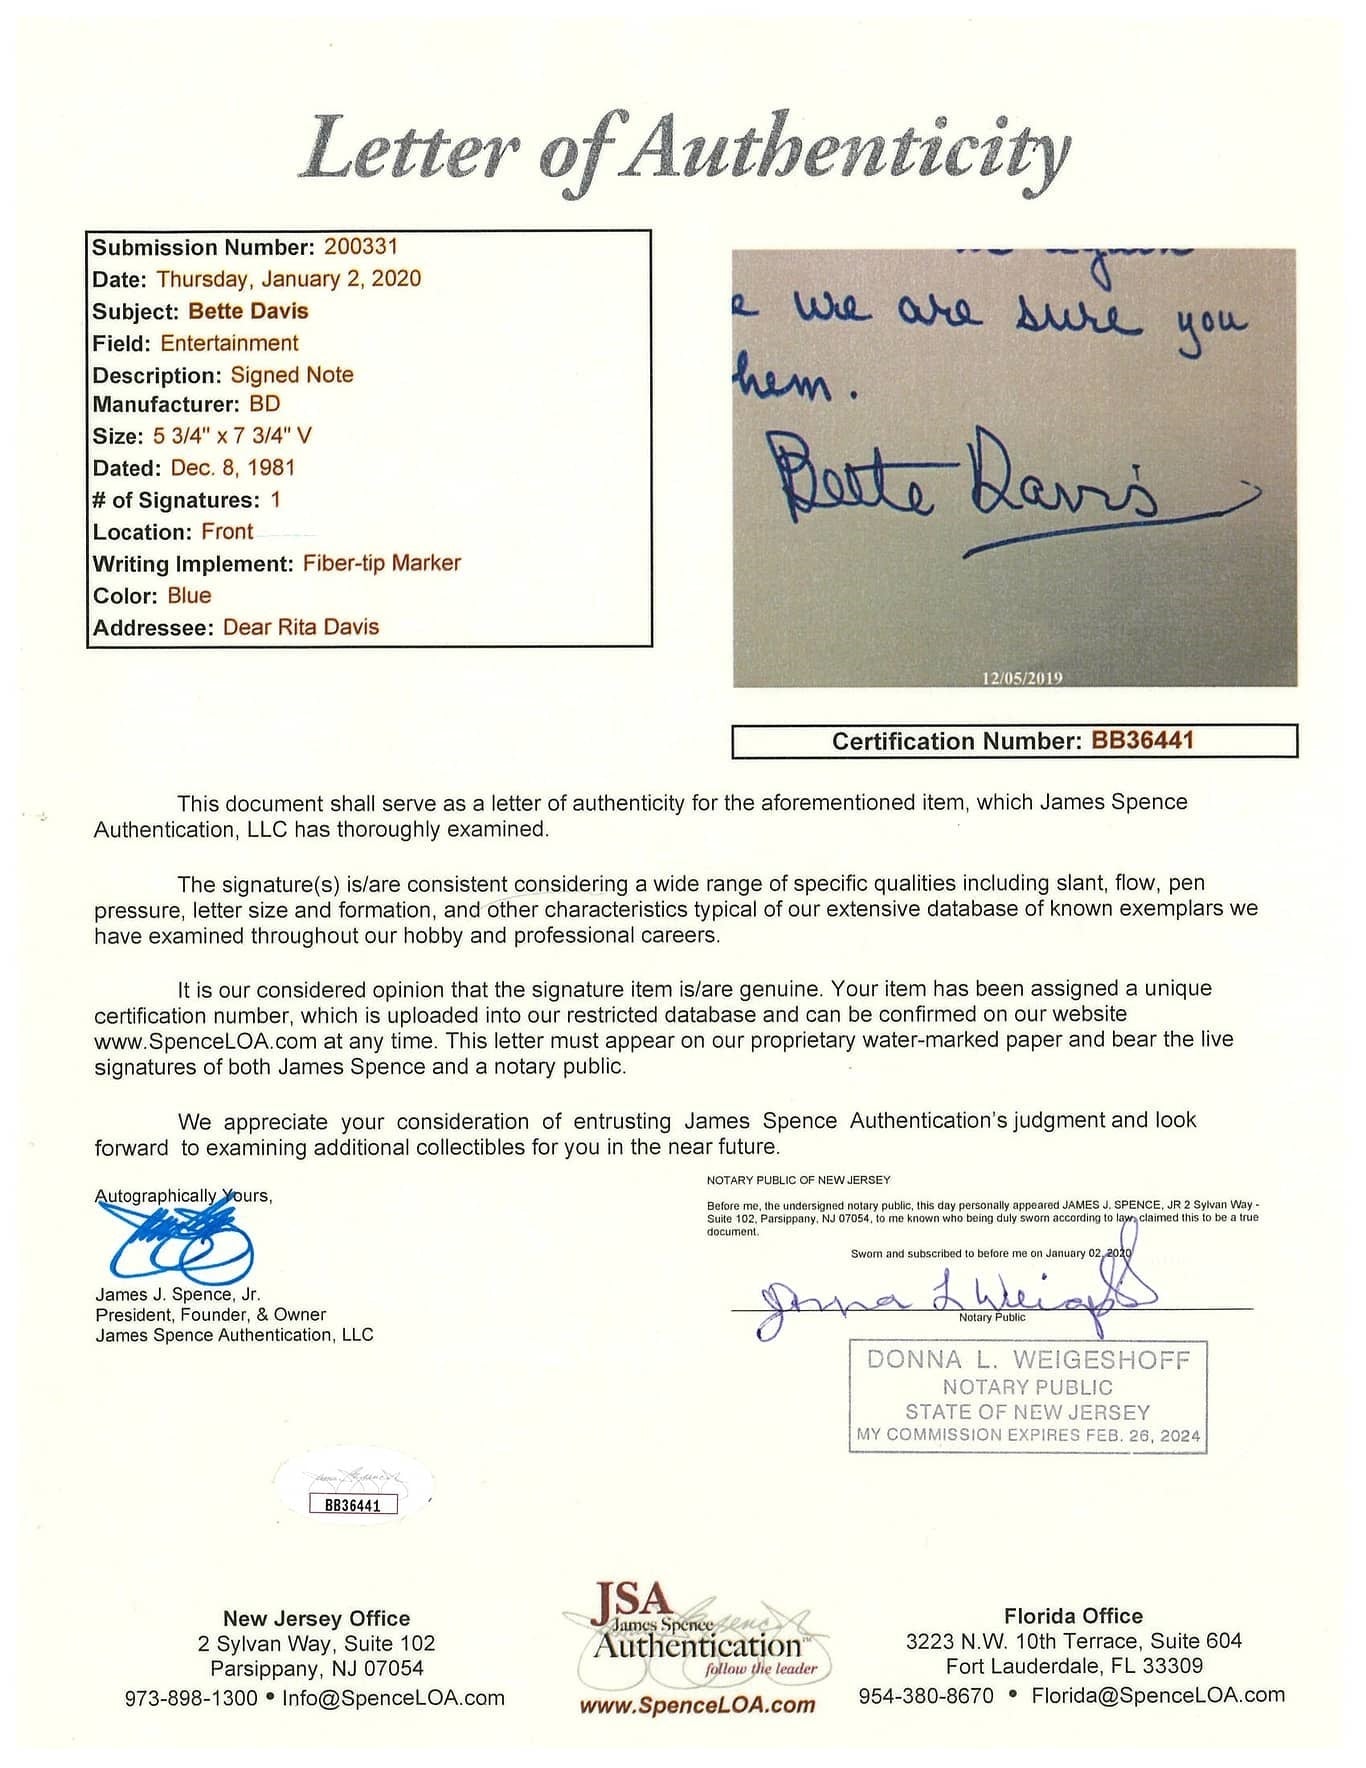 Letter of Authenticity
Submission Number: 200331
Date: Thursday, January 2, 2020
Subject: Bette Davis
Field: Entertainment
Description: Signed Note
Manufacturer: BD
Size: 5 3/4" x 7 3/4" V
Dated: Dec. 8, 1981
# of Signatures: 1
Location: Front
Writing Implement: Fiber-tip Marker
Color: Blue
Addressee: Dear Rita Davis
e we are sure you
hem.
Bette Davis
12/05/2019
Certification Number: BB36441
This document shall serve as a letter of authenticity for the aforementioned item, which James Spence
Authentication, LLC has thoroughly examined.
The signature(s) is/are consistent considering a wide range of specific qualities including slant, flow, pen
pressure, letter size and formation, and other characteristics typical of our extensive database of known exemplars we
have examined throughout our hobby and professional careers.
It is our considered opinion that the signature item is/are genuine. Your item has been assigned a unique
certification number, which is uploaded into our restricted database and can be confirmed on our website
www.SpenceLOA.com at any time. This letter must appear on our proprietary water-marked paper and bear the live
signatures of both James Spence and a notary public.
We appreciate your consideration of entrusting James Spence Authentication's judgment and look
forward to examining additional collectibles for you in the near future.
Autographically Yours,
James J. Spence, Jr.
President, Founder, & Owner
James Spence Authentication, LLC
NOTARY PUBLIC OF NEW JERSEY
Before me, the undersigned notary public, this day personally appeared JAMES J. SPENCE, JR 2 Sylvan Way -
Suite 102, Parsippany, NJ 07054, to me known who being duly sworn according to law, claimed this to be a true
document.
Sworn and subscribed to before me on January 02, 2020
Donna L Weigeshoff
Notary Public
DONNA L. WEIGESHOFF
NOTARY PUBLIC
STATE OF NEW JERSEY
MY COMMISSION EXPIRES FEB. 26, 2024
BB36441
New Jersey Office
2 Sylvan Way, Suite 102
Parsippany, NJ 07054
973-898-1300 • Info@SpenceLOA.com
JSA
James Spence
Authentication™
follow the leader
www.SpenceLOA.com
Florida Office
3223 N.W. 10th Terrace, Suite 604
Fort Lauderdale, FL 33309
954-380-8670 • Florida@SpenceLOA.com